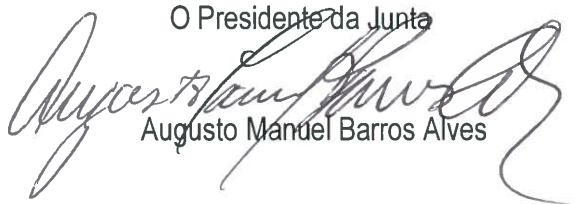 O Presidente da Junta
Augusto Manuel Barros Alves